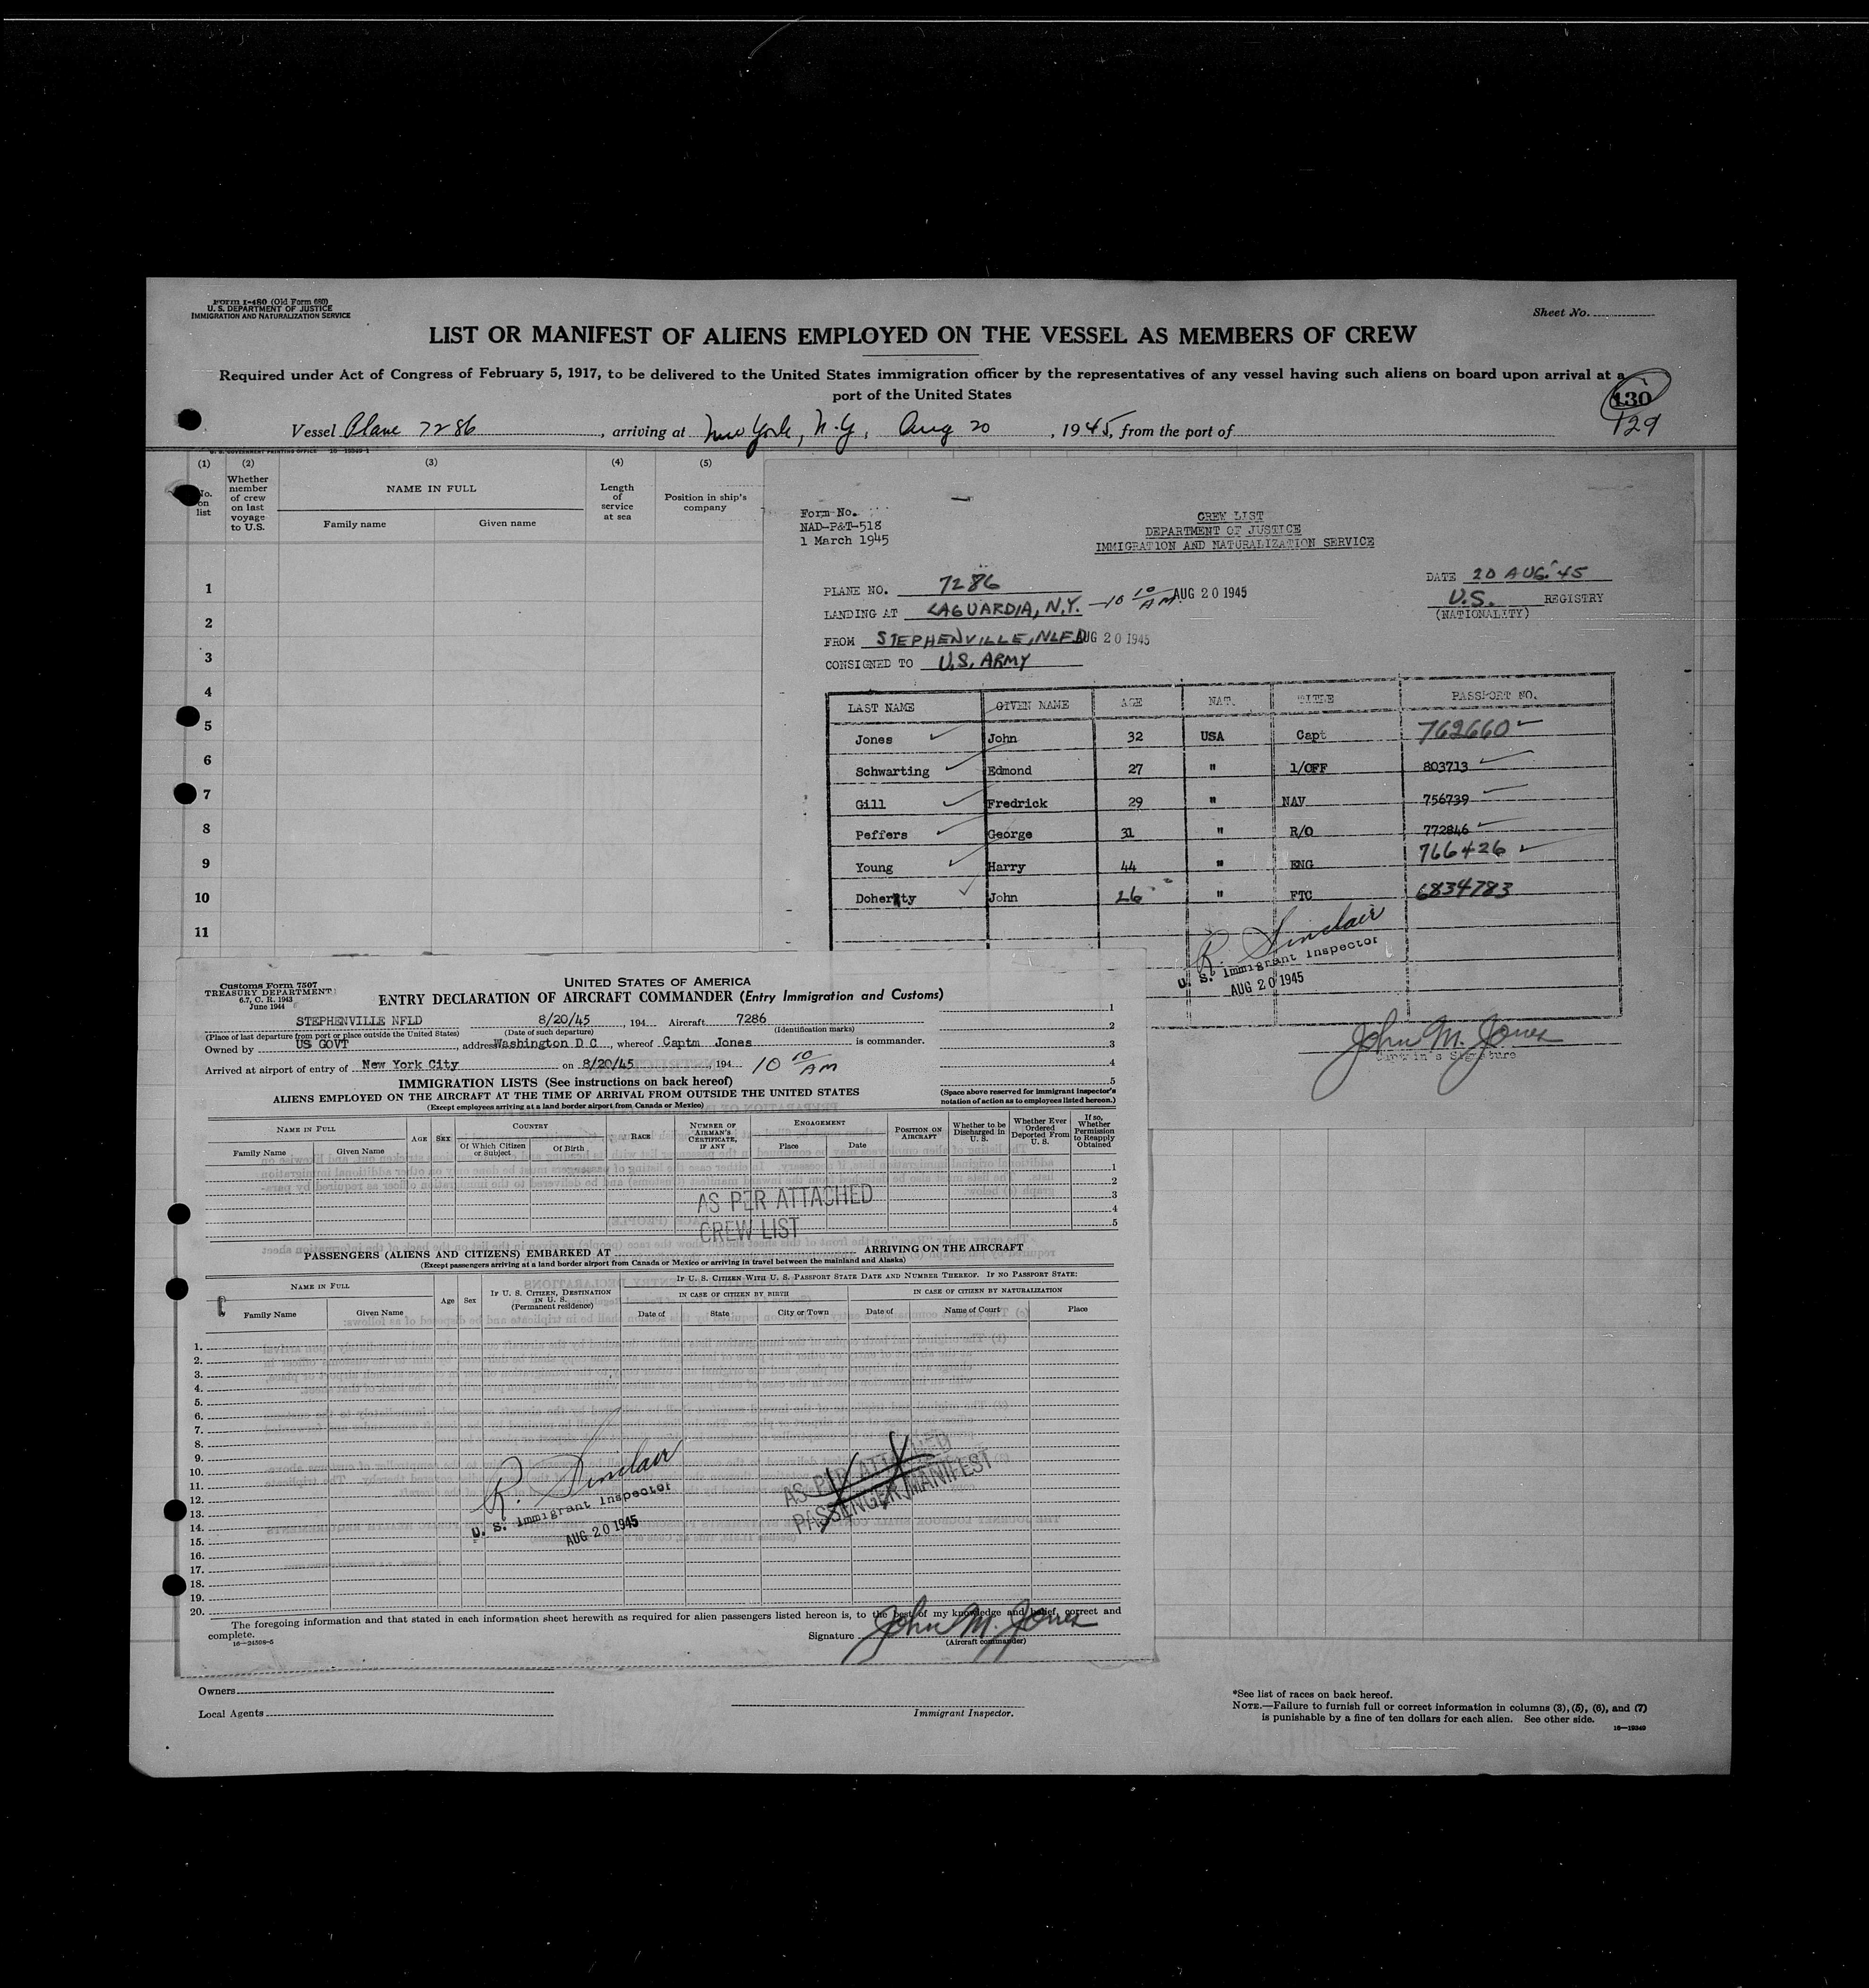 Form I-480 (Old Form 680)
U. S. DEPARTMENT OF JUSTICE
IMMIGRATION AND NATURALIZATION SERVICE
Sheet No.
LIST OR MANIFEST OF ALIENS EMPLOYED ON THE VESSEL AS MEMBERS OF CREW
Required under Act of Congress of February 5, 1917, to be delivered to the United States immigration officer by the representatives of any vessel having such aliens on board upon arrival at a
port of the United States
130
129
Vessel Plane 7286, arriving at New York, N.Y., Aug 20, 1945, from the port of
U. S. GOVERNMENT PRINTING OFFICE 16-19349-1
(1) (2) (3) (4) (5)
No. on list
Whether member of crew on last voyage to U.S.
NAME IN FULL
Family name Given name
Length of service at sea
Position in ship's company
1
2
3
4
5
6
7
8
9
10
11
Form No.
NAD-P&T-518
1 March 1945
CREW LIST
DEPARTMENT OF JUSTICE
IMMIGRATION AND NATURALIZATION SERVICE
DATE 20 AUG. 45
PLANE NO. 7286
U.S. REGISTRY
(NATIONALITY)
LANDING AT LAGUARDIA, N.Y. - 10 10/AM. AUG 20 1945
FROM STEPHENVILLE, NLFD AUG 20 1945
CONSIGNED TO U.S. ARMY
LAST NAME GIVEN NAME AGE NAT. TITLE PASSPORT NO.
Jones John 32 USA Capt 762660
Schwarting Edmond 27 " 1/OFF 803713
Gill Fredrick 29 " NAV 756739
Peffers George 31 " R/O 772846
Young Harry 44 " ENG 766426
Doherty John 26 " FTC 6834783
R. Sinclair
U. S. Immigrant Inspector
AUG 20 1945
John M. Jones
Captain's Signature
Customs Form 7507
TREASURY DEPARTMENT
6.7, C. R. 1943
June 1944
UNITED STATES OF AMERICA
ENTRY DECLARATION OF AIRCRAFT COMMANDER (Entry Immigration and Customs)
STEPHENVILLE NFLD 8/20/45, 194 Aircraft 7286
(Place of last departure from port or place outside the United States) (Date of such departure) (Identification marks)
Owned by US GOVT, address Washington D C, whereof Captm Jones is commander.
Arrived at airport of entry of New York City on 8/20/45, 194 10 10/AM
1
2
3
4
5
(Space above reserved for immigrant inspector's notation of action as to employees listed hereon.)
IMMIGRATION LISTS (See instructions on back hereof)
ALIENS EMPLOYED ON THE AIRCRAFT AT THE TIME OF ARRIVAL FROM OUTSIDE THE UNITED STATES
(Except employees arriving at a land border airport from Canada or Mexico)
NAME IN FULL
Family Name Given Name
AGE SEX
COUNTRY
Of Which Citizen or Subject Of Birth
RACE
NUMBER OF AIRMAN'S CERTIFICATE, IF ANY
ENGAGEMENT
Place Date
POSITION ON AIRCRAFT
Whether to be Discharged in U. S.
Whether Ever Ordered Deported From U. S.
If so, Whether Permission to Reapply Obtained
1
2
3
4
5
AS PER ATTACHED
CREW LIST
PASSENGERS (ALIENS AND CITIZENS) EMBARKED AT ARRIVING ON THE AIRCRAFT
(Except passengers arriving at a land border airport from Canada or Mexico or arriving in travel between the mainland and Alaska)
NAME IN FULL
Family Name Given Name
Age Sex
IF U. S. CITIZEN, DESTINATION IN U. S.
(Permanent residence)
IF U. S. CITIZEN WITH U. S. PASSPORT STATE DATE AND NUMBER THEREOF. IF NO PASSPORT STATE:
IN CASE OF CITIZEN BY BIRTH IN CASE OF CITIZEN BY NATURALIZATION
Date of State City or Town Date of Name of Court Place
1.
2.
3.
4.
5.
6.
7.
8.
9.
10.
11.
12.
13.
14.
15.
16.
17.
18.
19.
20.
R. Sinclair
U. S. Immigrant Inspector
AUG 20 1945
AS PER ATTACHED
PASSENGER MANIFEST
The foregoing information and that stated in each information sheet herewith as required for alien passengers listed hereon is, to the best of my knowledge and belief, correct and
complete.
16-24598-5
Signature John M. Jones
(Aircraft commander)
Owners
Local Agents
Immigrant Inspector.
*See list of races on back hereof.
NOTE.—Failure to furnish full or correct information in columns (3), (5), (6), and (7)
is punishable by a fine of ten dollars for each alien. See other side.
16-19349